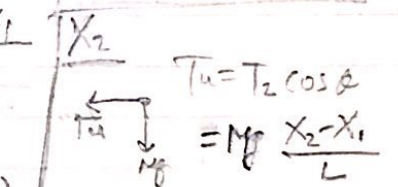 X₂
Tu = T₂ cos θ
Tu
= Mg (X₂-X₁)/L
Mg